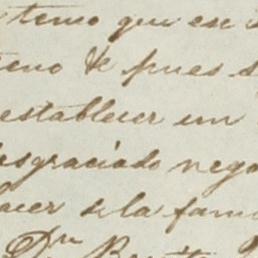 temo que ese
teno & pues s
establecer un
desgraciado nego
acer de la fam
Dn Benito